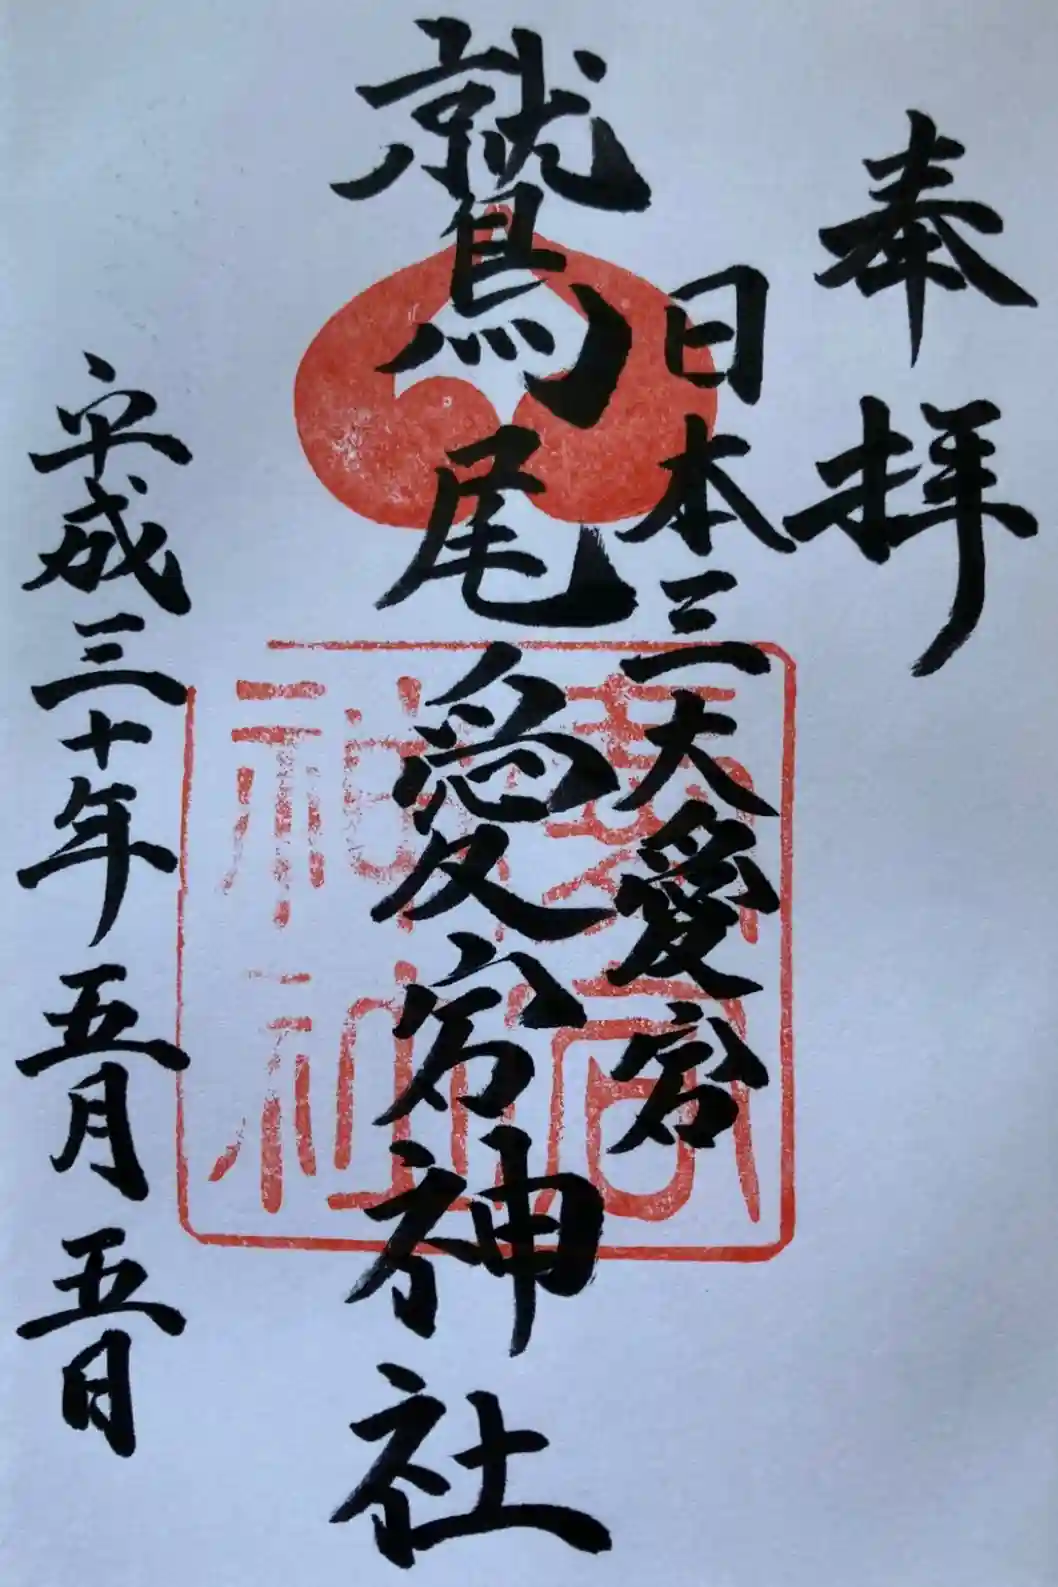 奉拝
日本三大愛宕
鷲尾愛宕神社
平成三十年五月五日
愛宕神社